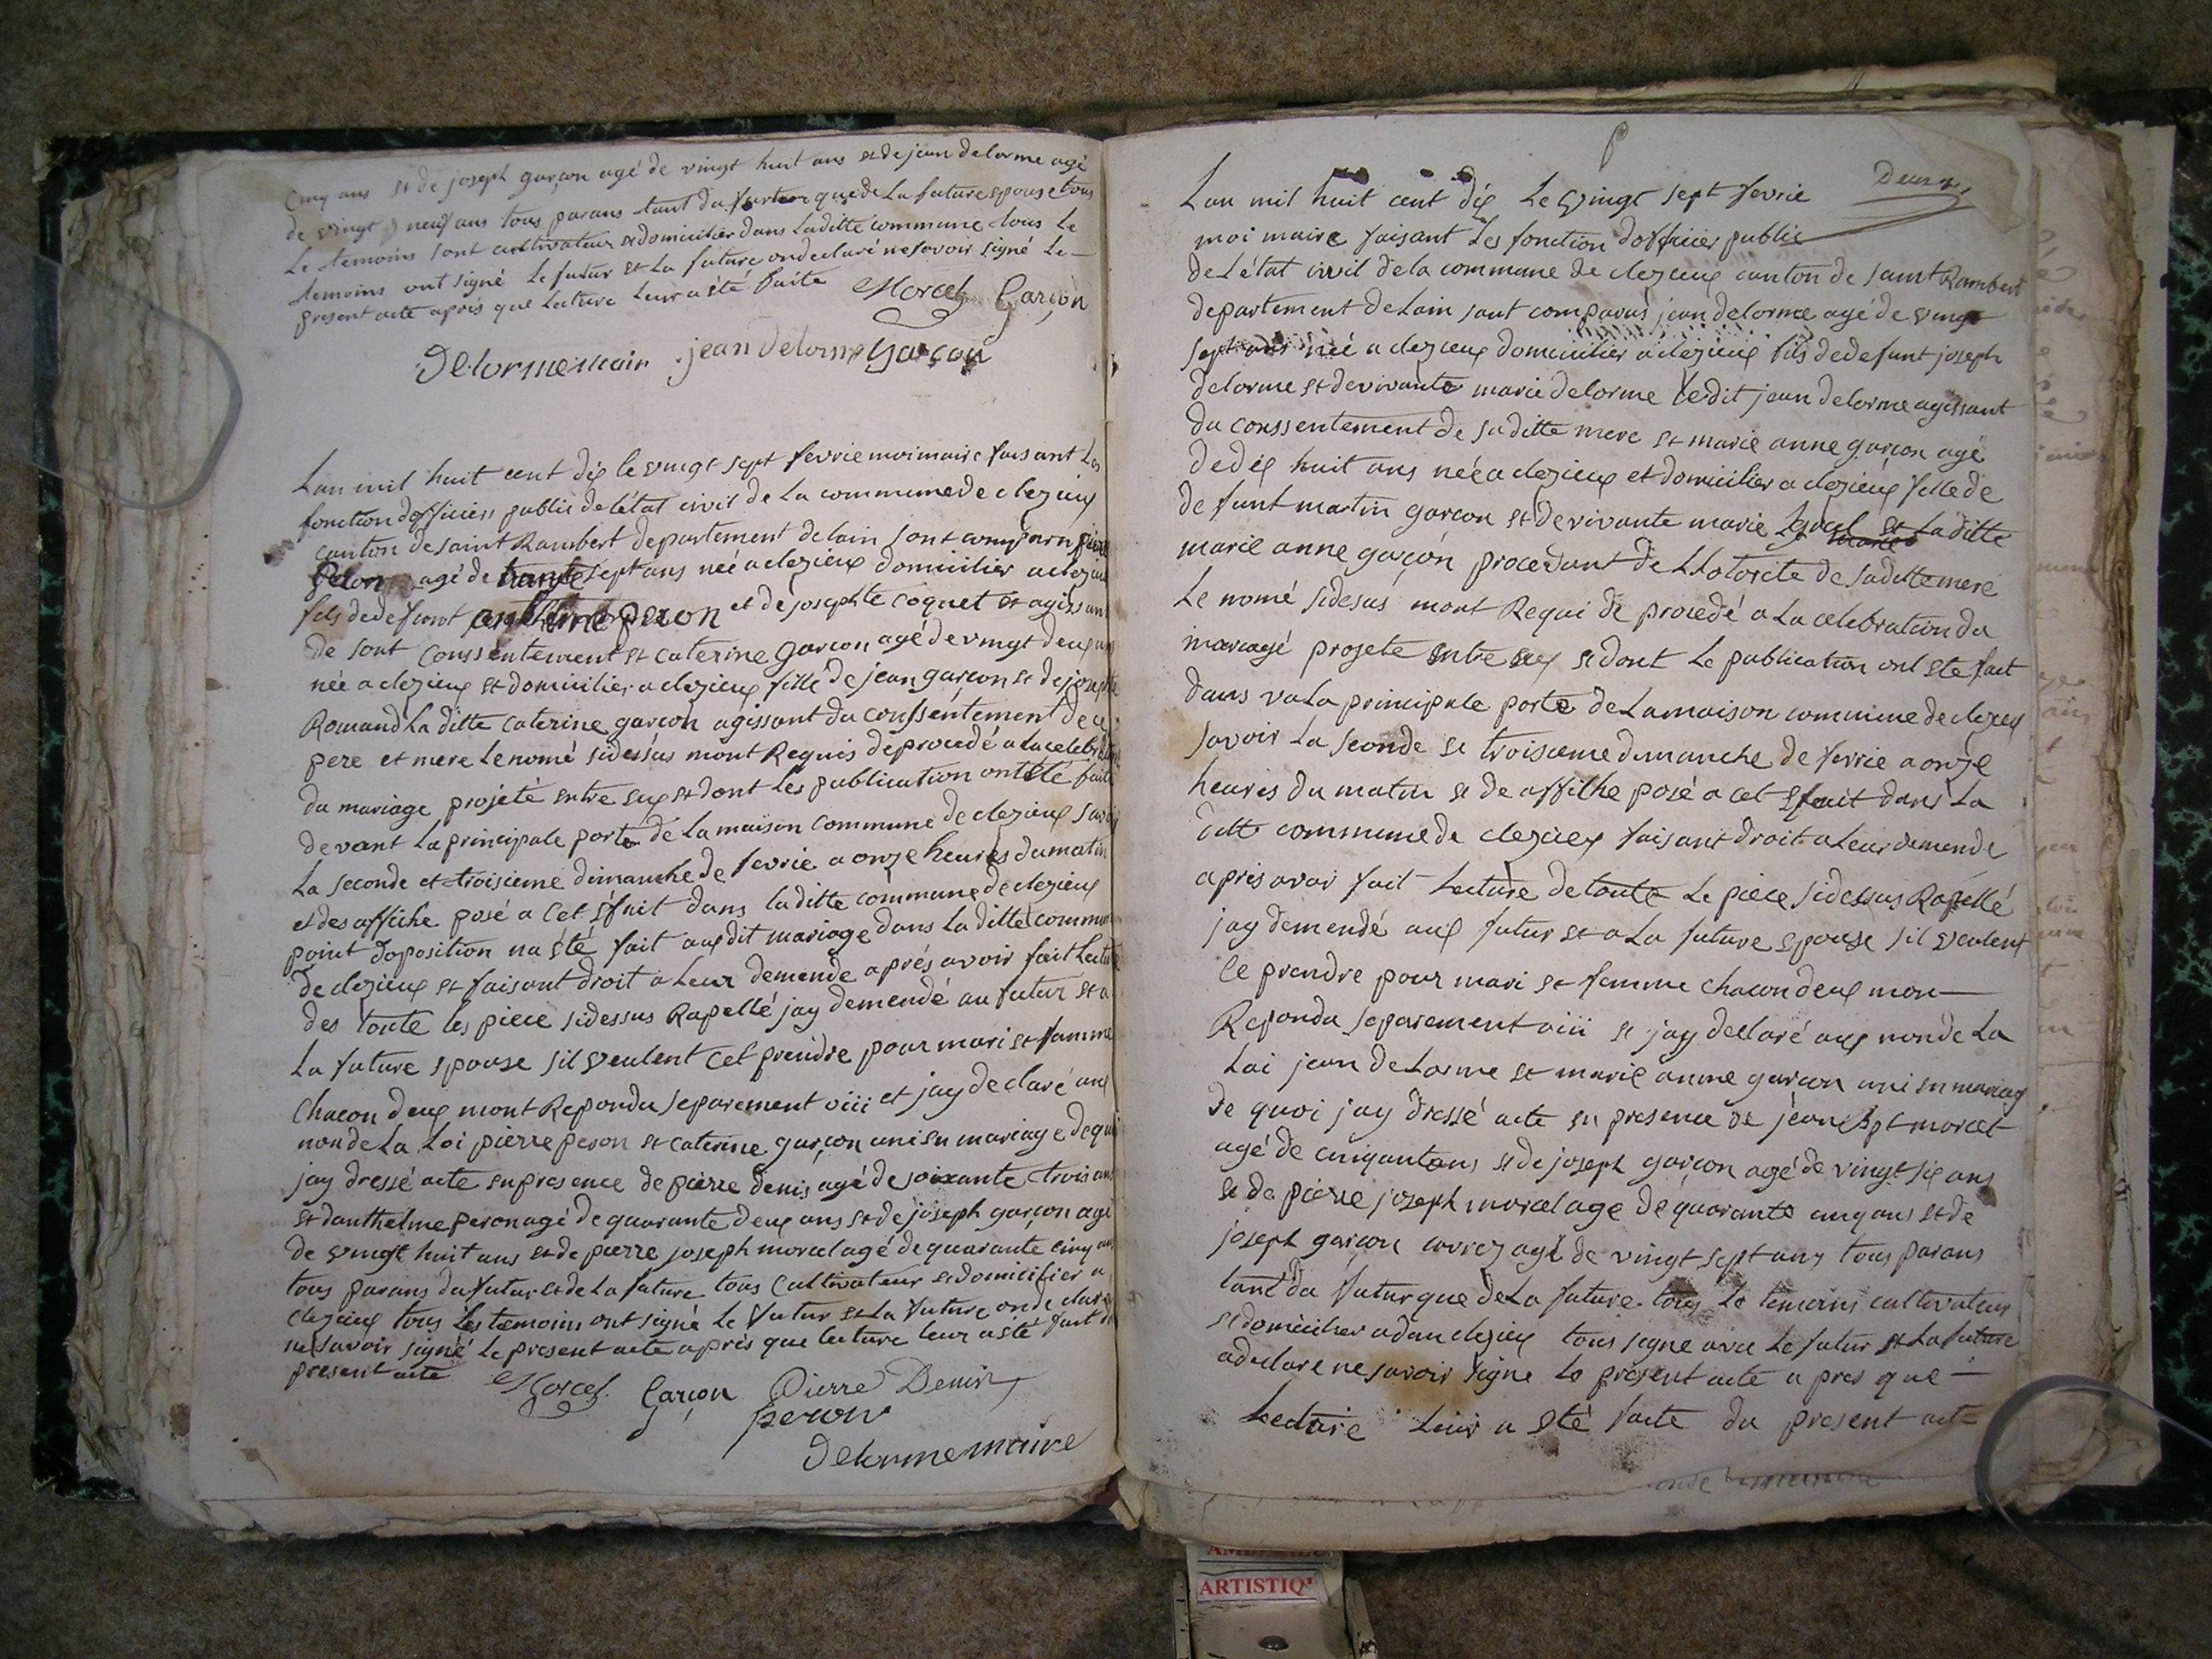 cinq ans et de joseph garçon agé de vingt huit ans et de jean delorme agé
de vingt neuf ans tous parans tant du futur que de La future epouse tous
Le temoins sont cultivateur et domicilier dans Laditte commune tous Le
temoins ont signé Le futur et La future on declaré ne savoir signé Le
present acte aprés que Lecture Leur a été faite Morcel Garçon
Delorme mair jean Delorme garçon
Lan mil huit cent dix le vingt sept fevrie moi maire faisant Les
fonction dofficiers public de létat civil de La commune de clezieux
canton de saint Rambert departement de lain sont comparu pierre
peron agé de trante sept ans née a clezieux domicilier a clezieux
fils de defunt anthelme peron et de josephte coquet et agissant
de sont conssentement et caterine garçon agé de vingt deux ans
née a clezieux et domicilier a clezieux fille de jean garçon et de josephte
Romand La ditte caterine garçon agissant du conssentement de ce
pere et mere Le nomé sidessus mont Requis de procedé a La celebration
du mariage projeté entre eux et dont Les publication ont été faite
devant La principale porte de La maison commune de clezieux savoir
La seconde et troisieme dimanche de fevrie a onze heures du matin
et des affiche posé a cet efait dans laditte commune de clezieux
point doposition na été fait aux dit mariage dans La ditte commune
de clezieux et faisant droit a Leur demende aprés avoir fait Lecture
des toute les piece sidessus Rapellé jay demendé au futur et a
La future epouse sil veulent cet prendre pour mari et famme
chacon deux mont Repondu separement oiii et jay declaré aux
non de La Loi pierre peron et caterine garçon uni en mariage de quoi
jay dressé acte en presence de pierre denis agé de soixante trois ans
et danthelme peron agé de quarante deux ans et de joseph garçon agé
de vingt huit ans et de pierre joseph morcel agé de quarante cinq ans
tous parans du futur et de La future tous cultivateur et domicilier a
clezieux tous Les temoins ont signé Le futur et La future on declaré
ne savoir signé Le present acte aprés que lecture leur a été fait du
present acte Morcel Garçon Pierre Denis
peron
Delorme maire
Lan mil huit cent dix Le vingt sept fevrie
moi maire faisant Les fonction dofficier public
de Létat civil de la commune de clezieux canton de saint Rambert
departement de Lain sont comparus jean delorme agé de vingt
sept ans née a clezieux domicilier a clezieux fils de defunt joseph
delorme et de vivante marie delorme Ledit jean delorme agissant
du conssentement de saditte mere et marie anne garçon agé
de dix huit ans née a clezieux et domicilier a clezieux fille de
defunt martin garçon et de vivante marie et La ditte
marie anne garçon procedant de Lotorite de saditte mere
Le nomé sidesus mont Requi de procedé a La celebration du
mariage projete entre eux et dont Le publication ont ete fait
dans va La principale porte de La maison commune de clezieux
savoir La seconde et troisieme dimanche de fevrie a onze
heures du matin et de affilhe posé a cet efait dans La
ditte commune de clezieux faisant droit a Leur demende
apris avoir fait Lecture de toute Le piece sidessus Rapellé
jay demendé aux futur et a La future epouse sil veulent
ce prendre pour mari et femme chacon deux mon
Repondu separement oiii et jay declaré aux non de La
Loi jean deLorme et marie anne garçon uni en mariag
de quoi jay dressé acte en presence de jean Bpt morcel
agé de cinquant ans et de joseph garçon agé de vingt six ans
et de pierre joseph morcel age de quarante cinq ans et de
joseph garçon agé de vingt sept ans tous parans
tant du futur que de La future tous Le temoins cultivateur
et domicilier clezieux tous signe avec Le futur et La future
a declare ne savoir signe Le present acte a pres que
Lecture Leur a été faite du present acte
ARTISTIQ'